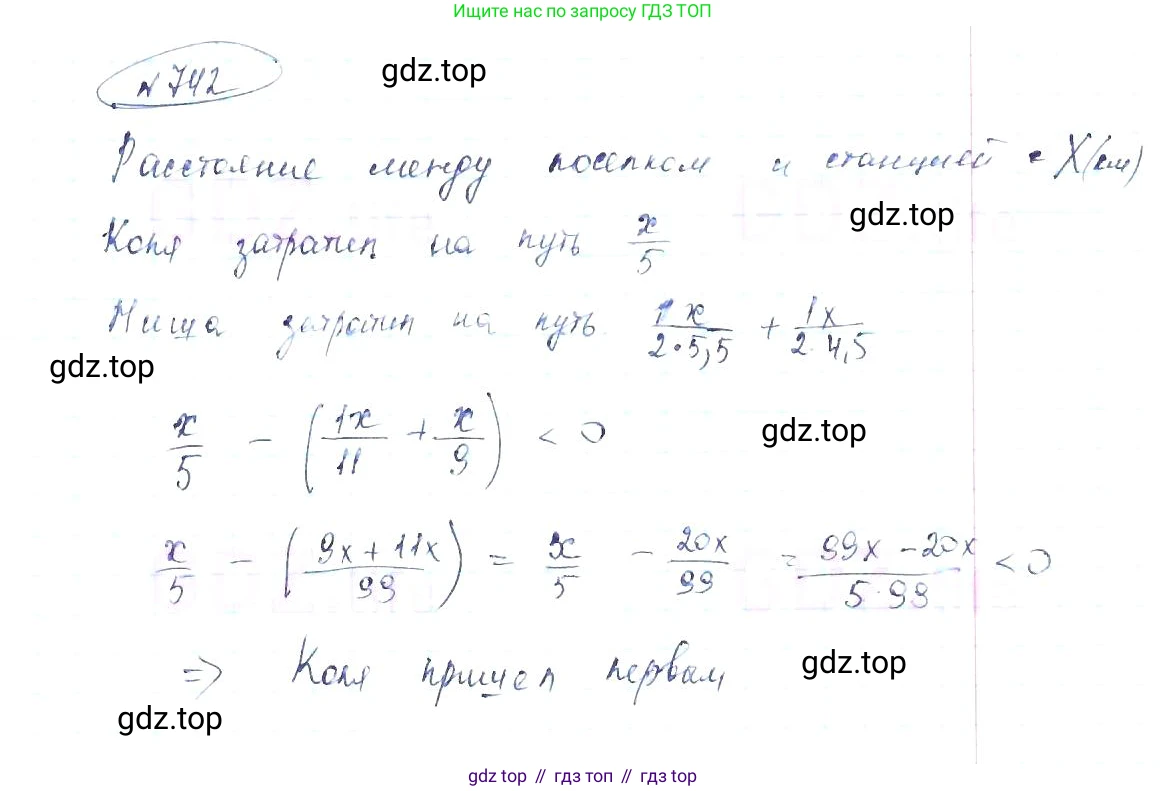 Ищите нас по запросу ГДЗ ТОП
№ 742
gdz.top
Расстояние между поселком и станцией - X(км)
gdz.top
Коля затратил на путь x/5
Миша затратил на путь 1x/(2·5,5) + 1x/(2·4,5)
gdz.top
x/5 - (1x/11 + x/9) < 0
gdz.top
x/5 - ((9x + 11x)/99) = x/5 - 20x/99 = (99x - 20x)/(5·99) < 0
⇒ Коля пришел первым
gdz.top
gdz.top
gdz top // гдз топ // гдз top